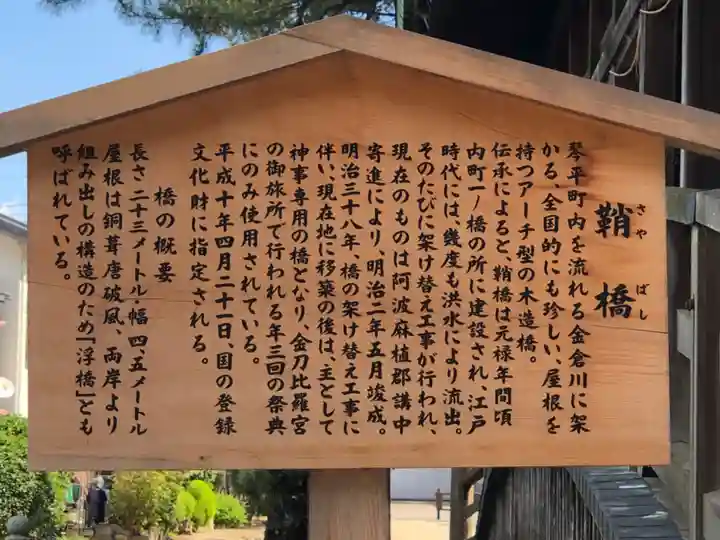 鞘橋
さや ばし
琴平町内を流れる金倉川に架
かる、全国的にも珍しい、屋根を
持つアーチ型の木造橋。
伝承によると、鞘橋は元禄年間頃
内町一ノ橋の所に建設され、江戸
時代には、幾度も洪水により流出。
そのたびに架け替え工事が行われ、
現在のものは阿波麻植郡講中
寄進により、明治二年五月竣成。
明治三十八年、橋の架け替え工事に
伴い、現在地に移築の後は、主として
神事専用の橋となり、金刀比羅宮
の御旅所で行われる年三回の祭典
にのみ使用されている。
平成十年四月二十一日、国の登録
文化財に指定される。
橋の概要
長さ二十三メートル・幅四、五メートル
屋根は銅葺唐破風、両岸より
組み出しの構造のため「浮橋」とも
呼ばれている。